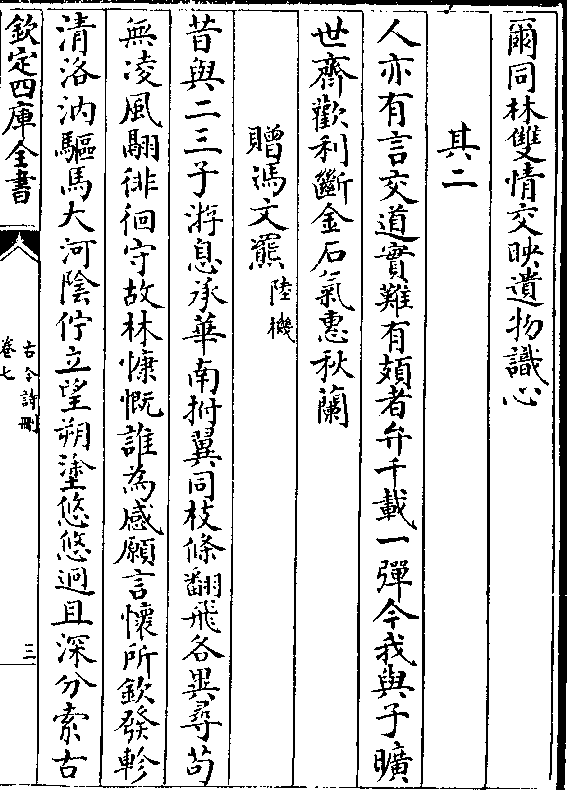 爾同林雙情交映遺物識心
其二
人亦有言交道實難有頍者弁千載一彈今我與子曠
世齊歡利斷金石氣惠秋蘭
贈馮文羆陸機
昔與二三子游息承華南拊翼同枝條翻飛各異尋苟
無凌風翮徘徊守故林慷慨誰為感願言懷所欽發軫
清洛汭驅馬大河陰佇立望朔塗悠悠迥且深分索古
欽定四庫全書
古今詩刪
卷七
三